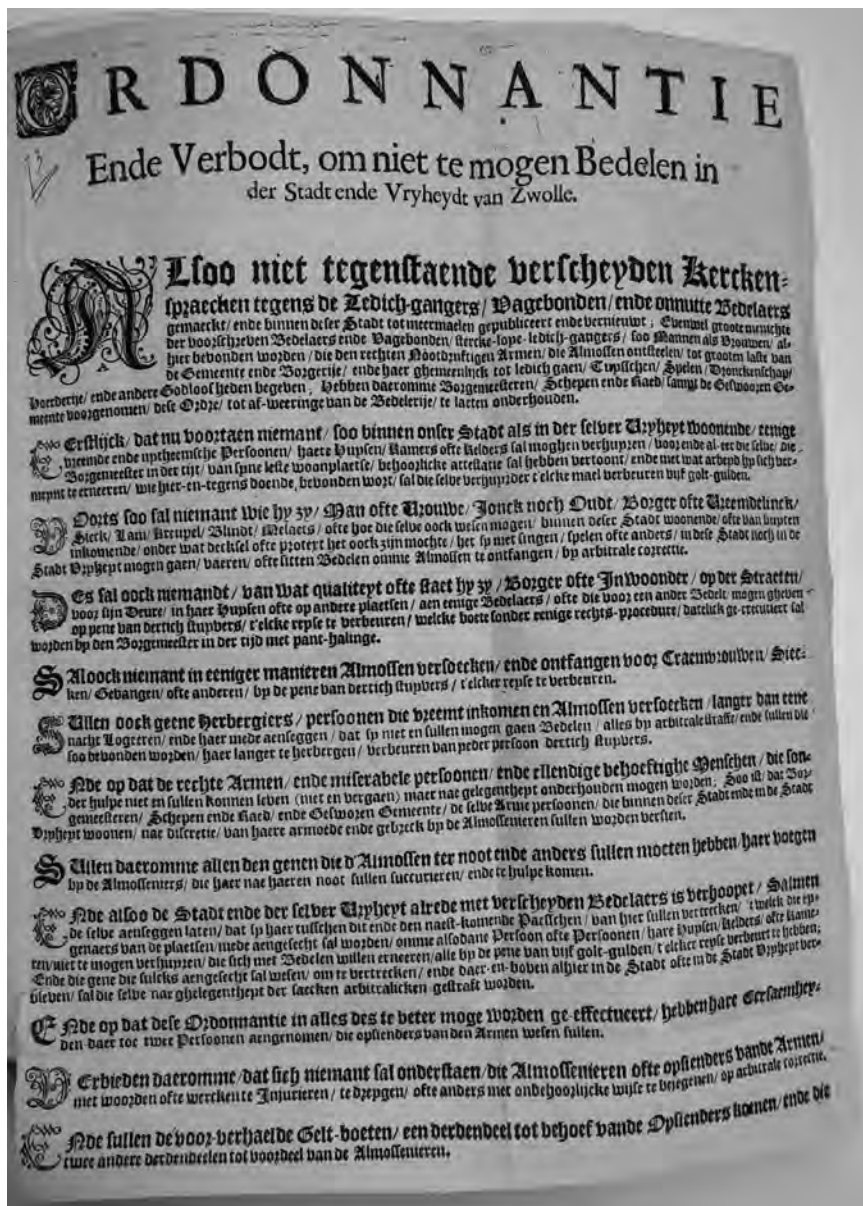 ORDONNANTIE
Ende Verbodt, om niet te mogen Bedelen in
der Stadt ende Vryheydt van Zwolle.
ALsoo niet tegenstaende verscheyden Kercken-
spraecken tegens de Ledich-gangers/ Vagebonden/ ende onnutte Bedelaers
gemaeckt/ ende binnen deser Stadt tot meermaelen gepubliceert ende vernieuwt; Evenwel groote menichte
der voorschreven Bedelaers ende Vagebonden/ stercke-lope-ledich-gangers/ soo Mannen als Vrouwen/ al-
hier bevonden worden/ die den rechten Nootdruftigen Armen/ die Almossen ontsteelen/ tot grooten laste van
de Gemeente ende Borgerije/ ende haer ghemeenlijck tot ledich gaen/ Tuysschen/ Spelen/ Dronckenschap/
Hoerderije/ ende andere Godloosheden begeven; Hebben daeromme Borgemeesteren/ Schepen ende Raed/ sampt de Geswooren Ge-
meente voorgenomen/ dese Ordre/ tot af-weeringe van de Bedelerije/ te laeten onderhouden.
Erstlijck/ dat nu voortaen niemant/ soo binnen onser Stadt als in der selver Vryheyt woonende/ eenige
vreemde ende uytheemsche Persoonen/ haere Huysen/ Kamers ofte Kelders sal moghen verhuyren/ voor ende al-eer die selve/ die
Borgemeester in der tijt/ van syne leste woonplaetse/ behoorlicke attestatie sal hebben vertoont/ ende met wat arbeyd hy sich ver-
meynt te erneeren/ wie hier-en-tegens doende, bevonden wort/ sal die selve verhuyrder t'elcke mael verbeuren vijf golt-gulden.
VOorts soo sal niemant wie hy zy/ Man ofte Vrouwe/ Jonck noch Oudt/ Borger ofte Vreemdelinck/
Sieck/ Lam/ Kreupel/ Blindt/ Melaets/ ofte hoe die selve oock wesen mogen/ binnen deser Stadt woonende/ ofte van buyten
inkomende/ onder wat decksel ofte protext het oock zijn mochte/ het sy met singen/ spelen ofte anders/ in dese Stadt noch in de
Stadt Vryheyt mogen gaen/ vaeren/ ofte sitten Bedelen omme Almossen te ontfangen/ by arbitrale correctie.
DEs sal oock niemandt/ van wat qualiteyt ofte staet hy zy/ Borger ofte Inwoonder/ op der Straeten/
voor sijn Deure/ in haer Huysen ofte op andere plaetsen/ aen eenige Bedelaers/ ofte die voor een ander Bedelt/ mogen gheven
op pene van dertich stuyvers/ t'elcke reyse te verbeuren/ welcke boete sonder eenige rechts-procedure/ datelick ge-executiert sal
worden by den Borgemeester in der tijd met pant-halinge.
SAl oock niemant in eeniger manieren Almossen versoecken/ ende ontfangen voor Craemvrouwen/ Siec-
ken/ Gevangen/ ofte anderen/ by de pene van dertich stuyvers/ t'elcker reyse te verbeuren.
SUllen oock geene Herbergiers/ persoonen die vreemt inkomen en Almossen versoecken/ langer dan eene
nacht Logeeren/ ende haer mede aenseggen/ dat sy niet en sullen mogen gaen Bedelen/ alles by arbitrale straffe/ ende sullen die
soo bevonden worden/ haer langer te herbergen/ verbeuren van yeder persoon dertich stuyvers.
ENde op dat de rechte Armen/ ende miserabele persoonen/ ende ellendige behoeftighe Menschen/ die son-
der hulpe niet en sullen konnen leben (niet en vergaen) maer nae gelegentheyt onderhouden mogen worden; Soo ist/ dat Bor-
gemeesteren/ Schepen ende Raed/ ende Gesworen Gemeente/ de selve Arme persoonen/ die binnen deser Stadt ende in de Stadt
Vryheyt woonen/ nae discretie/ van haere armoede ende gebreck by de Almossenieren sullen worden versien.
SUllen daeromme allen den genen die d'Almossen ter noot ende anders sullen moeten hebben/ haer voegen
by de Almosseniers/ die haer nae haeren noot sullen succurieren/ ende te hulpe komen.
ENde alsoo de Stadt ende der selver Vryheyt alrede met verscheyden Bedelaers is verhoopet/ Salmen
de selve aenseggen laten/ dat sy haer tusschen dit ende den naest-komende Paesschen/ van hier sullen vertrecken/ t'welck die ey-
genaers van de plaetsen mede aengesecht sal worden/ omme alsodane Persoon ofte Persoonen/ hare Huysen/ Kelders/ ofte Kame-
ren/ niet te mogen verhuyren/ die sich met Bedelen willen erneeren/ alle by de pene van vijf golt-gulden/ t'elcker reyse verbeurt te hebben;
Ende die gene die sulcks aengesecht sal wesen/ om te vertrecken/ ende daer-en-boven alhier in de Stadt ofte in de Stadt Vryheyt ver-
bleven/ sal die selve nae ghelegentheyt der saecken arbitralicken gestraft worden.
ENde op dat dese Ordonnantie in alles des te beter moge worden ge-effectueert/ hebben hare Eersaemhey-
den daer toe twee Persoonen aengenomen/ die opsienders van den Armen wesen sullen.
VErbieden daeromme/ dat sich niemant sal onderstaen/ die Almossenieren ofte opsienders vande Armen/
met woorden ofte wercken te Injurieren/ te dreygen/ ofte anders met onbehoorlijcke wijse te bejegenen/ op arbitrale correctie.
ENde sullen de voor-verhaelde Gelt-boeten/ een derdendeel tot behoef vande Opsienders komen/ ende die
twee andere derdendeelen tot voordeel van de Almossenieren.